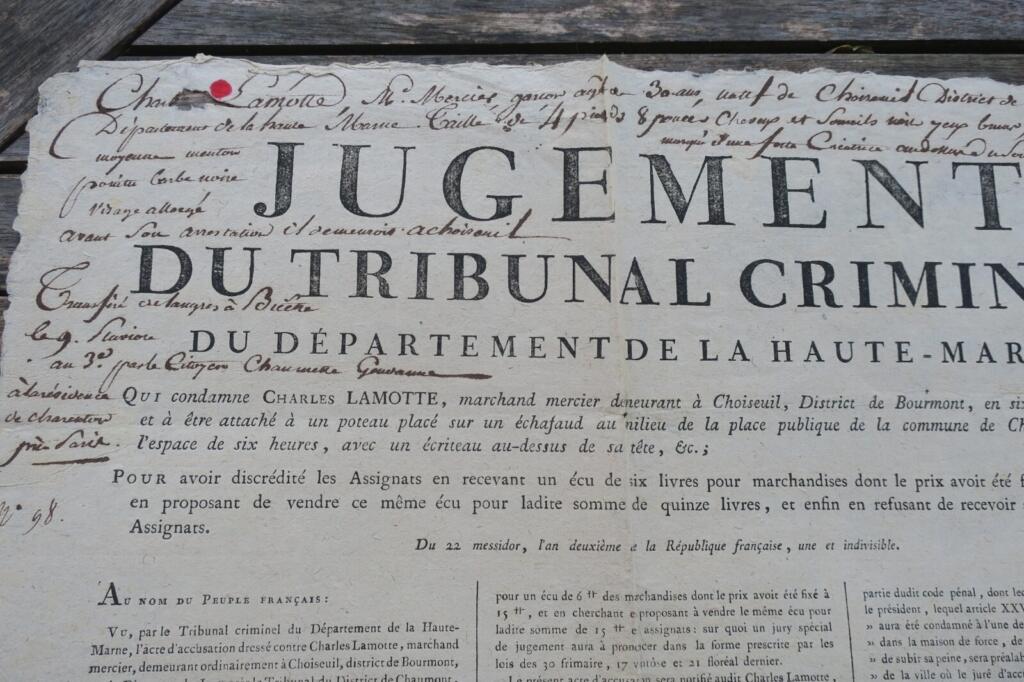 Charles Lamotte, Md. Mercier, garcon agé de 30 ans, natif de Choiseuil District de
Département de la haute Marne Taille de 4 pieds 8 pouces Cheveux et Sourcils noir yeux bruns
moyenne menton
marqué d'une forte Cicatrice
pointu barbe noire
visage allongé
avant son arrestation il demeuroit a choiseuil
JUGEMENT
DU TRIBUNAL CRIMIN
Transféré de langres à
le 9. Pluviose
DU DÉPARTEMENT DE LA HAUTE-MAR
au 3e. par le Citoyen
à la résidence
de charenton
près Paris.
QUI condamne CHARLES LAMOTTE, marchand mercier demeurant à Choiseuil, District de Bourmont, en six
et à être attaché à un poteau placé sur un échafaud au milieu de la place publique de la commune de Ch
l'espace de six heures, avec un écriteau au-dessus de sa tête, &c.;
POUR avoir discrédité les Assignats en recevant un écu de six livres pour marchandises dont le prix avoit été f
en proposant de vendre ce même écu pour ladite somme de quinze livres, et enfin en refusant de recevoir
Assignats.
N° 98.
Du 22 messidor, l'an deuxième de la République française, une et indivisible.
AU NOM DU PEUPLE FRANÇAIS:
VU, par le Tribunal criminel du Département de la Haute-
Marne, l'acte d'accusation dressé contre Charles Lamotte, marchand
mercier, demeurant ordinairement à Choiseuil, district de Bourmont,
Tribunal du District de Chaumont,
pour un écu de 6 ₶ des marchandises dont le prix avoit été fixé à
15 ₶, et en cherchant et proposant à vendre le même écu pour
ladite somme de 15 ₶ en assignats: sur quoi un jury spécial
de jugement aura à prononcer dans la forme prescrite par les
lois des 30 frimaire, 17 ventose et 21 floréal dernier.
Le présent acte d'accusation sera notifié audit Charles Lamotte,
partie dudit code pénal, dont lec
le président, lequel article XXV
» aura été condamné à l'une de
» dans la maison de force, de
» de subir sa peine, sera préalab
» de la ville où le juré d'acc